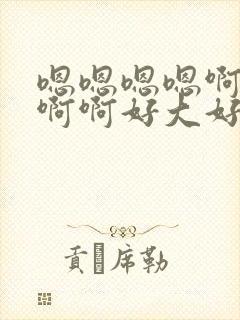 嗯嗯嗯嗯啊
啊啊好大好
貢 席勒